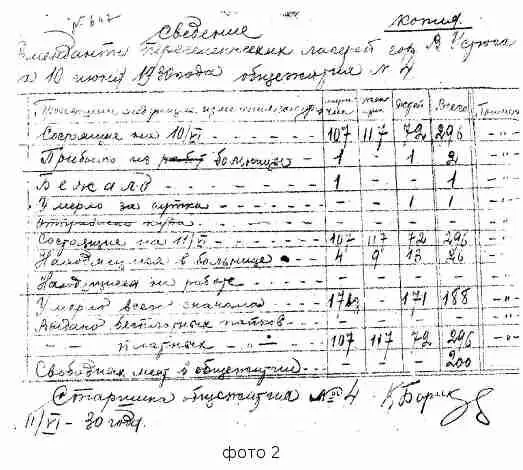 № 647
Сведение
копия
Коменданта переселенческих лагерей гор. В Устюга
на 10 июня 1930 года общежития № 4
муж чин жен щин детей Всего
Состоящие на 10/VI - - - - 107 117 72 296 - "-
Прибыло из больницы 1 - 1 2 - "-
Бежало - - - - 1 - - 1 - "-
Умерло за сутки - - - - - 1 1 - "-
Состоящие на 11/VI - - - - 107 117 72 296 - "-
Находящихся в больнице 4 9 13 26 - "-
Находящиеся на работе - - - - - "-
Умерло всего сначала 17 - 171 188 - "-
Выдано бесплатных пайков - - - - - "-
- - платных - - 107 117 72 296 - "-
Свободных мест в общежитии - - - 200
Старшина общежития № 4
11/VI - 30 года.
фото 2